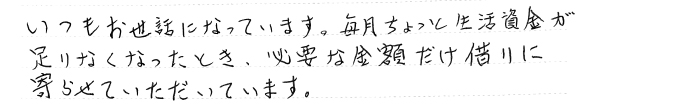 いつもお世話になっています。毎月ちょっと生活資金が
足りなくなったとき、必要な金額だけ借りに
寄らせていただいています。